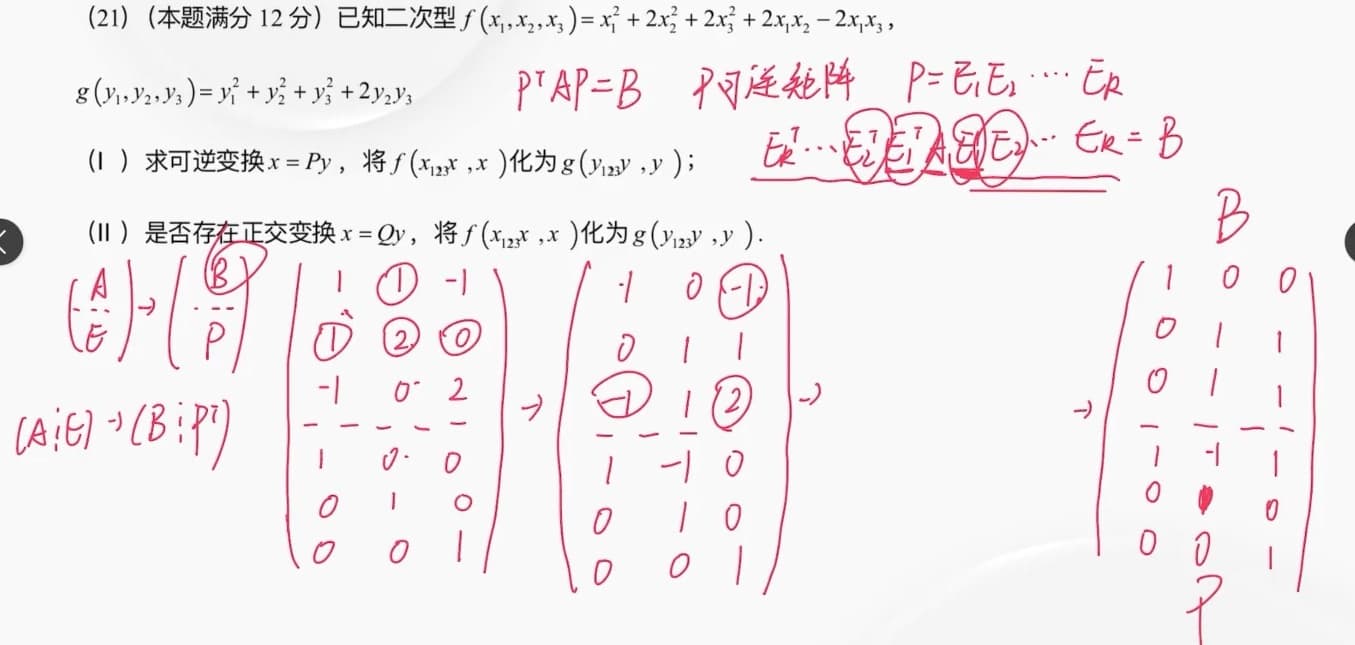 (21)（本题满分 12 分）已知二次型 f(x₁,x₂,x₃)= x₁² + 2x₂² + 2x₃² + 2x₁x₂ − 2x₁x₃，
g(y₁,y₂,y₃)= y₁² + y₂² + y₃² + 2y₂y₃
PᵀAP=B P可逆矩阵 P=E₁E₂ ···· E_R
(Ⅰ ）求可逆变换 x = Py，将 f(x₁₂₃x ,x )化为 g(y₁₂₃y ,y )；
E_Rᵀ···E₂ᵀE₁ᵀAE₁E₂··· E_R = B
(II ）是否存在正交变换 x = Qy，将 f(x₁₂₃x ,x )化为 g(y₁₂₃y ,y ).
B
(A --- E) → (B --- P)
(A⋮E) → (B⋮Pᵀ)
1 1 -1
1 2 0
-1 0 2
1 0 0
0 1 0
0 0 1
→
1 0 -1
0 1 1
-1 1 2
1 -1 0
0 1 0
0 0 1
→
→
1 0 0
0 1 1
0 1 1
1 -1 1
0 0
0 0 1
P